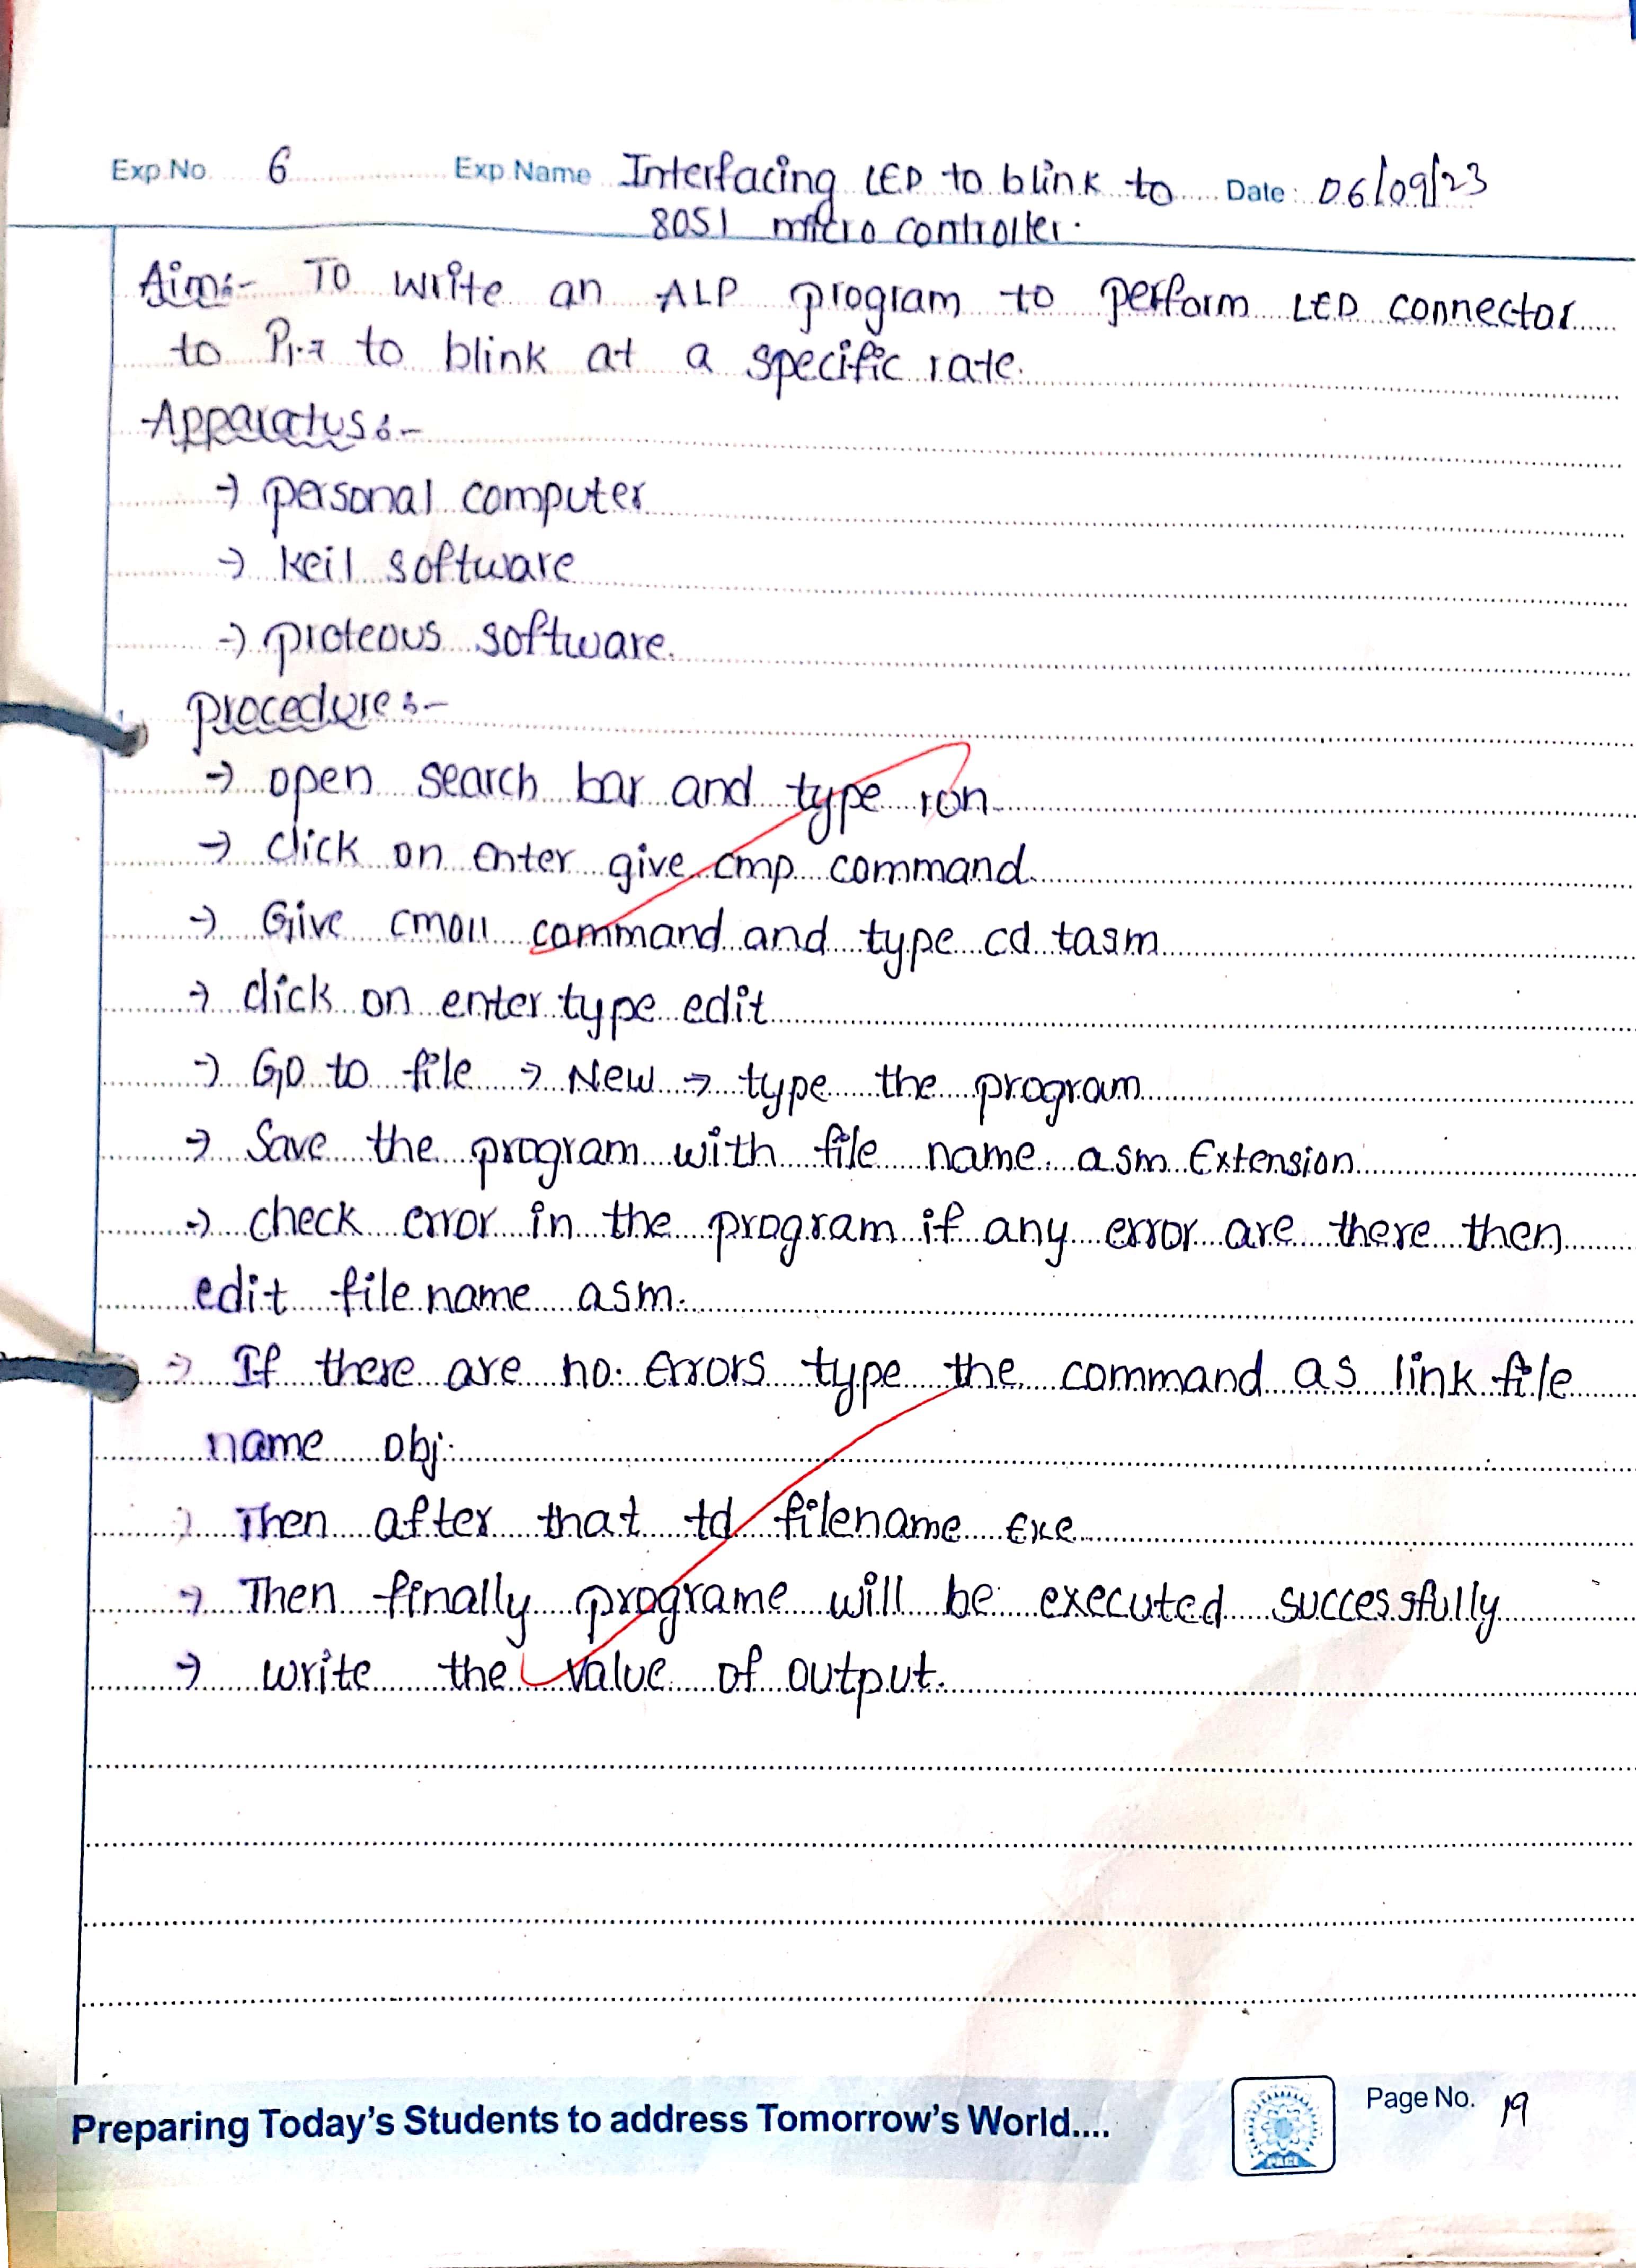 Exp.No. 6 Exp.Name Interfacing LED to blink to Date: 06/09/23
8051 micro controller.
Aim:- To write an ALP program to perform LED connector
to P1.7 to blink at a specific rate.
Apparatus:-
→ personal computer
→ keil software
→ proteous software.
procedure:-
→ open search bar and type ron
→ click on enter give cmp command.
→ Give cmall command and type cd tasm
→ click on enter type edit
→ Go to file → New → type the program
→ Save the program with file name. asm Extension
→ check error in the program if any error are there then
edit file name asm.
→ If there are no. Errors type the command as link file
name obj.
→ Then after that td filename exe
→ Then finally programe will be executed successfully
→ write the value of output.
Preparing Today's Students to address Tomorrow's World....
Page No. 19
PACE